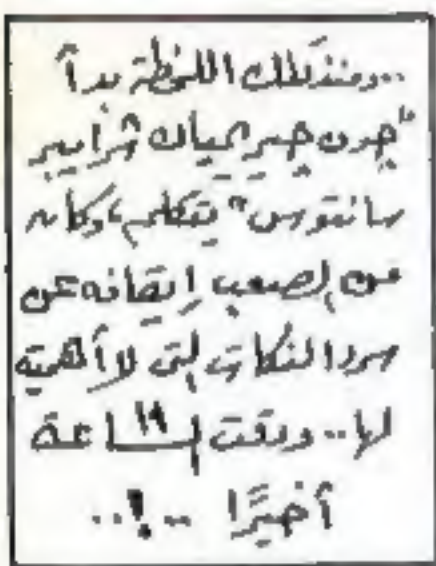 ..ومنذ تلك اللحظة بدأ
"چون چيريميان شرايبر
سانتوس" يتكلم، وكأنه
من الصعب إيقافه عن
سرد النكات التى لا أهمية
لها.. ودقت الساعة ١٩
أخيرًا ..!..